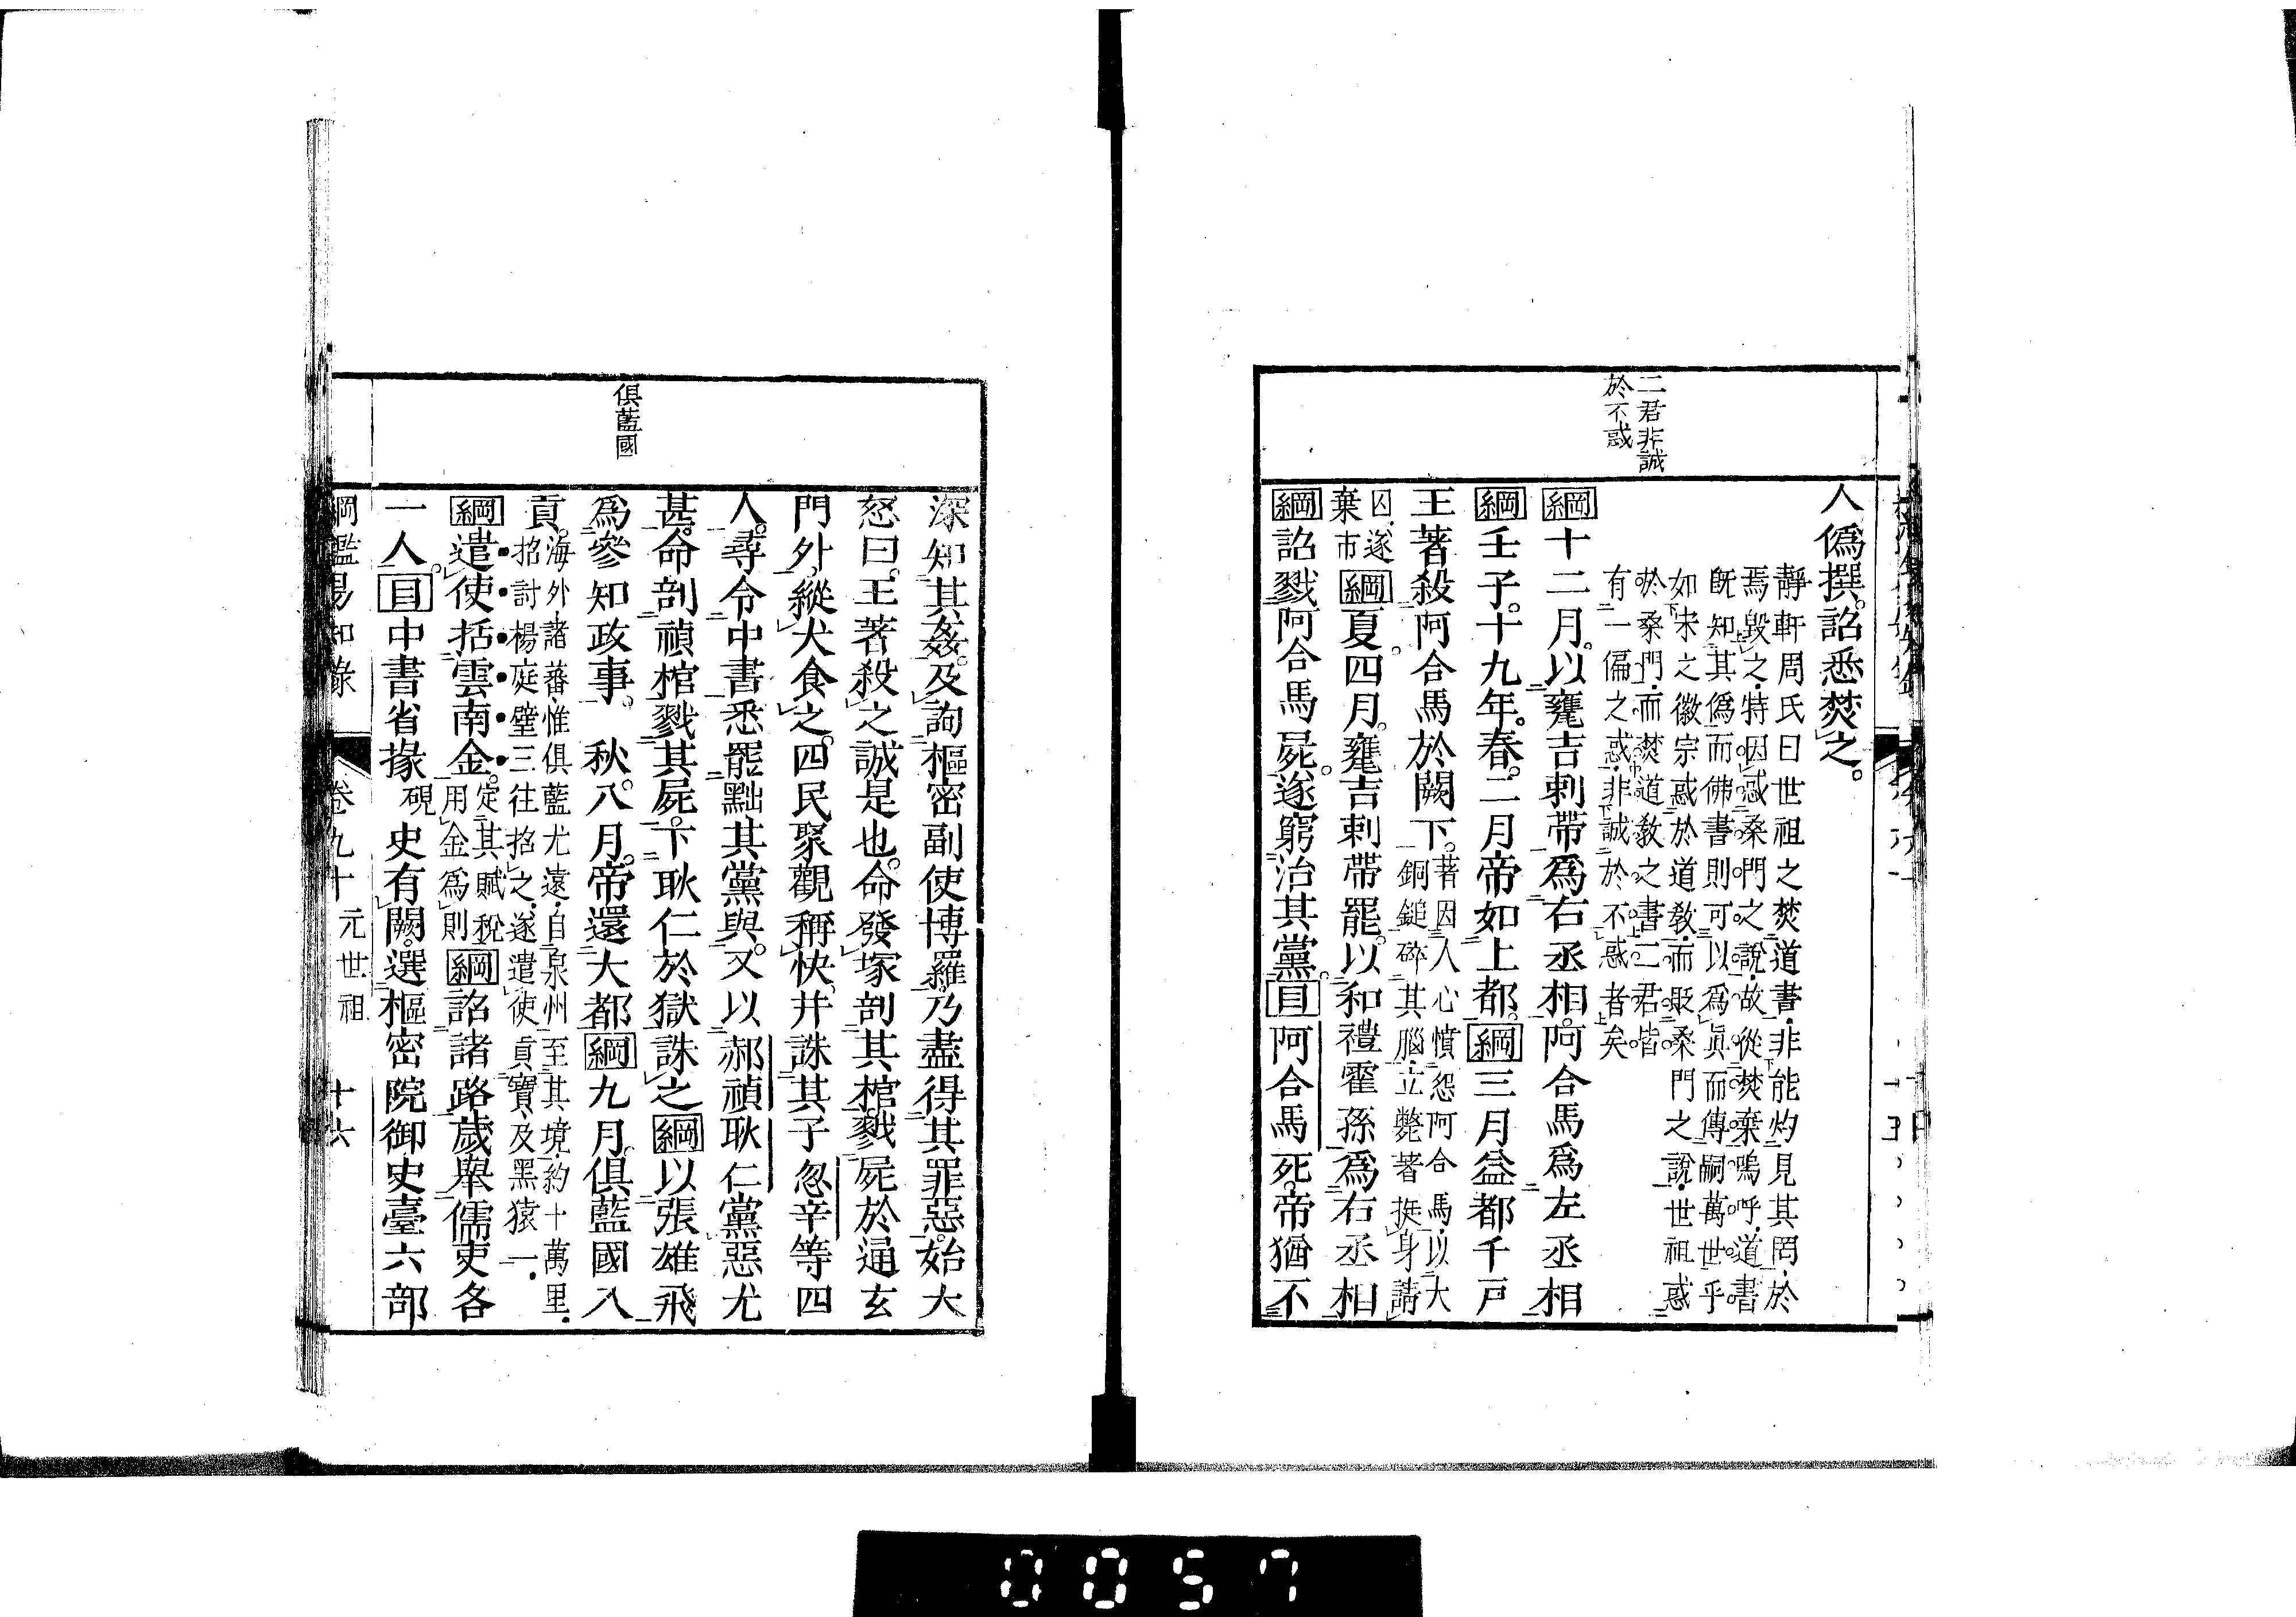 二君非誠
於不惑
人僞撰。詔悉焚之。
靜軒周氏曰世祖之焚道書、非能灼見其罔、於
焉毀之、特因惑桑門之說、故從焚棄、嗚呼、道書
旣知其僞、而佛書則可以爲眞而傳嗣萬世乎
如宋之徽宗惑於道敎、而貶桑門之說、世祖惑
於桑門、而焚道敎之書、二君皆
有一偏之惑、非誠於不惑者矣
綱十二月。以甕吉剌帶爲右丞相。阿合馬爲左丞相
綱壬子。十九年。春。二月帝如上都。綱三月益都千戶
王著殺阿合馬於闕下。著因人心憤怨阿合馬、以大
銅鎚碎其腦、立斃著挺身請
囚、遂
棄市綱夏。四月。甕吉剌帶罷。以和禮霍孫爲右丞相
綱詔戮阿合馬屍。遂窮治其黨。目阿合馬死。帝猶不
俱藍國
深知其姦。及詢樞密副使博羅。乃盡得其罪惡。始大
怒曰。王著殺之誠是也。命發塚剖其棺。戮屍於通玄
門外。縱犬食之。四民聚觀稱快。幷誅其子忽辛等四
人。尋令中書悉罷黜其黨與。又以郝禎耿仁黨惡尤
甚。命剖禎棺戮其屍。下耿仁於獄誅之綱以張雄飛
爲參知政事。秋。八月。帝還大都綱九月。俱藍國入
貢。海外諸蕃、惟俱藍尤遠、自泉州至其境、約十萬里、
招討楊庭璧三往招之、遂遣使貢寶及黑猿一、
綱遣使括雲南金。定其賦稅
用金爲則綱詔諸路歲舉儒吏各
一人。目中書省掾硯史有闕。選樞密院御史臺六部
綱鑑易知錄 卷九十 元世祖 十六